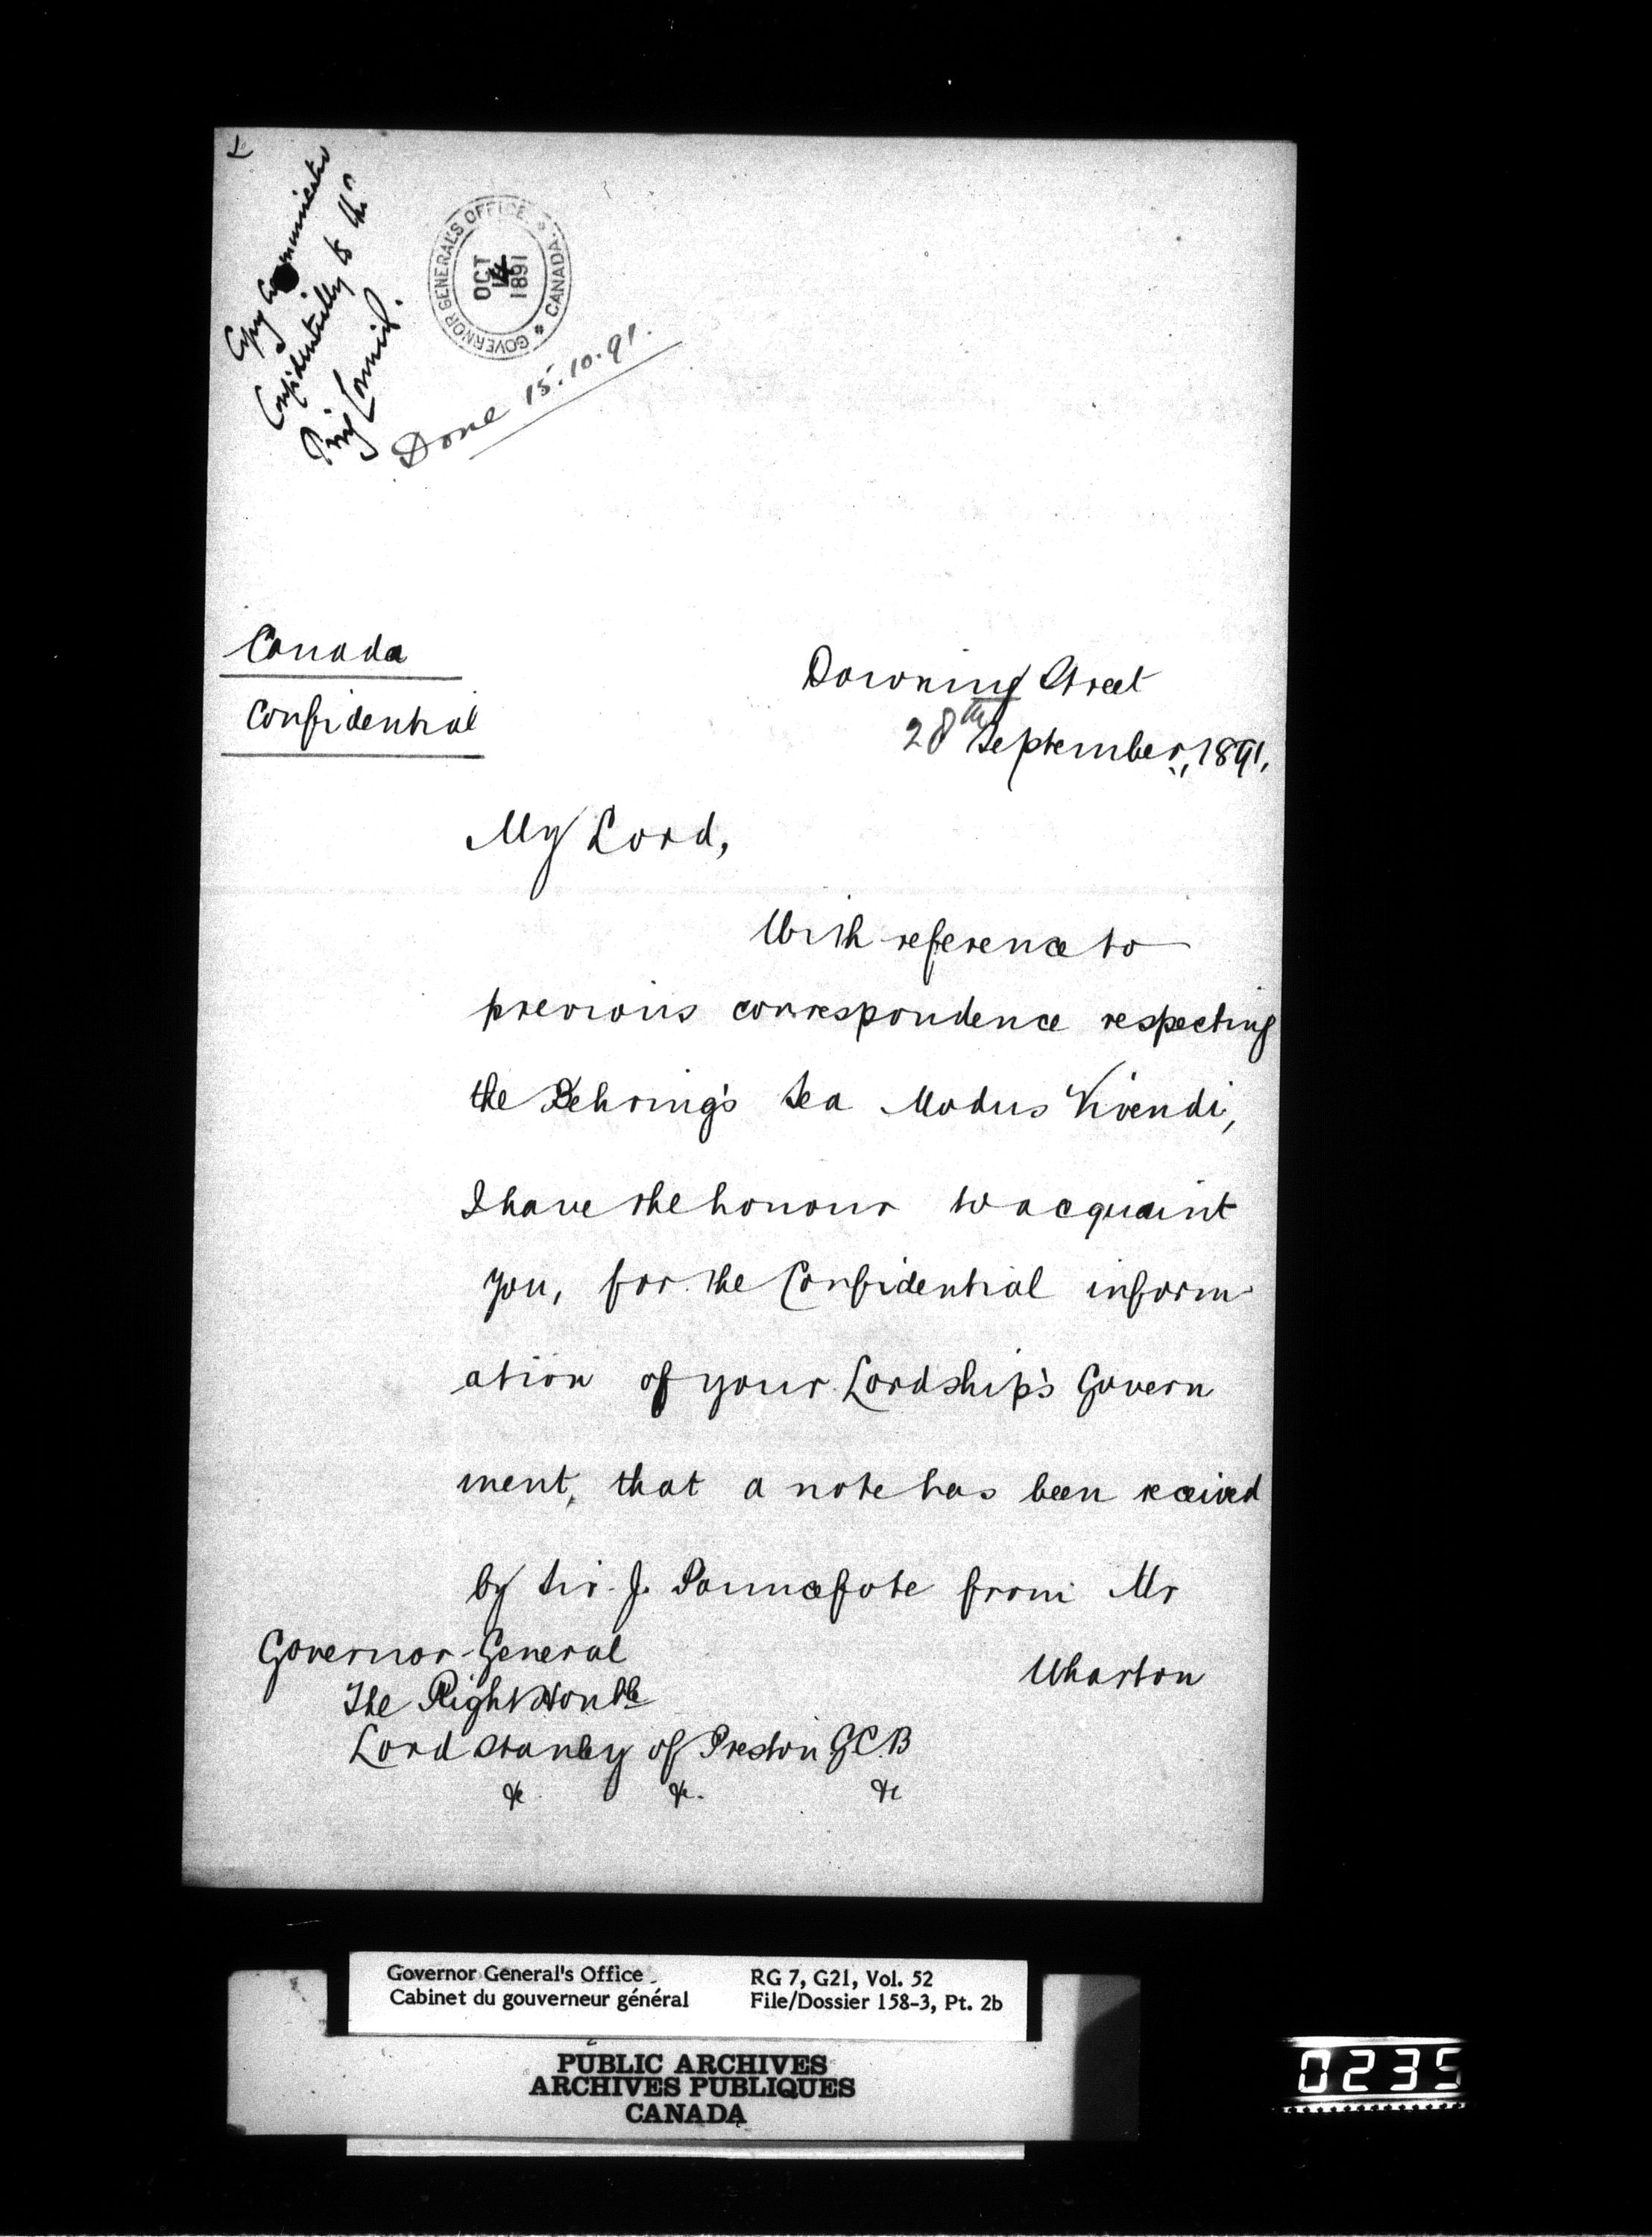 Copy communicated
Confidentially to the
Privy Council.
GOVERNOR GENERAL'S OFFICE
* CANADA *
OCT
14
1891
Done 15.10.91.
Canada
Confidential
Downing Street
28th September, 1891.
My Lord,
With reference to
previous correspondence respecting
the Behring's Sea Modus Vivendi,
I have the honour to acquaint
you, for the Confidential inform
ation of your Lordship's Govern
ment, that a note has been received
by Sir J. Pauncefote from Mr
Wharton
Governor-General
The Right Honble
Lord Stanley of Preston G.C.B
&c &c. &c
Governor General's Office
Cabinet du gouverneur général
RG 7, G21, Vol. 52
File/Dossier 158-3, Pt. 2b
PUBLIC ARCHIVES
ARCHIVES PUBLIQUES
CANADA
0235